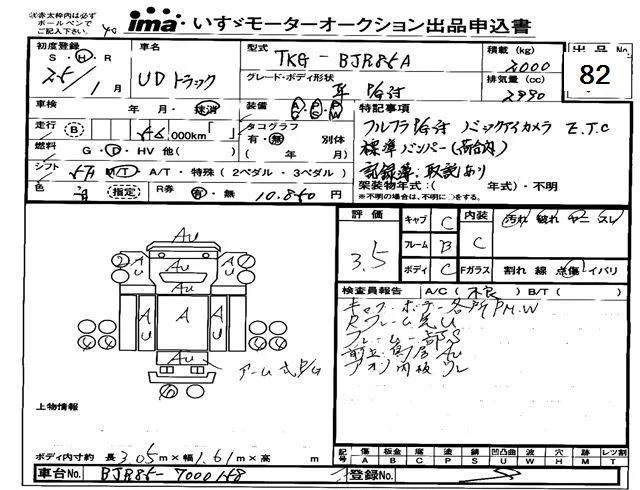 ※赤太枠内は必ず
ボールペンで
ご記入下さい。
ima いすゞモーターオークション出品申込書
初度登録 S・H・R 25年 1月
車名 UDトラック
型式 TKG-BJR85A
積載 (kg) 2000
出品No. 82
グレード・ボディ形状
排気量 (cc) 2990
車検 年 月・抹消
装備 A/C P/S P/W
特記事項
走行 B 000km
タコグラフ 有・無 別体 ( 年 月)
フルフラ バックアイカメラ E.T.C
標準バンパー(荷台内)
記録簿・取説あり
燃料 G・D・HV 他( )
シフト 5F M/T・A/T・特殊 (2ペダル・3ペダル)
架装物年式:( 年式)・不明
※不明の場合は、不明に○をする。
色 青 (指定)
R券 有・無 10.850 円
評価 3.5
キャブ C
フレーム B
ボディ C
内装 C
汚れ 破れ ヤニ スレ
Fガラス 割れ 線 点傷 イバリ
検査員報告 A/C( 不良 ) B/T( )
キャブ・ボデー各所PM.W
Rフレーム先U
フレーム一部S
Au
アオリ内板
Au
上物情報
ボディ内寸約 長 3.05m×幅 1.61m×高 m
記号 傷A 板金B 腐C 塗P 錆S 凹凸曲U 波W 穴H 跡M レツ割T
車台No. BJR85-7000148
登録No.